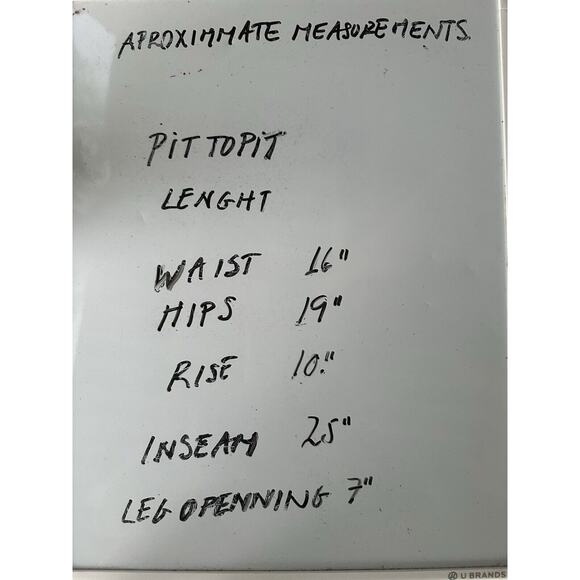 APROXIMMATE MEASUREMENTS
PIT TO PIT
LENGHT
WAIST 16"
HIPS 19"
RISE 10."
INSEAM 25"
LEG OPENNING 7"
U BRANDS